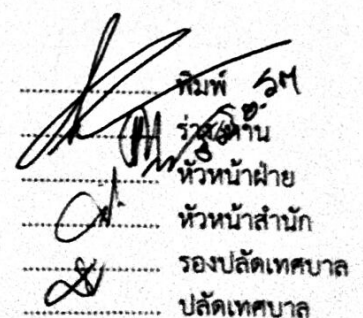 ................ พิมพ์
................ ร่าง/ทาน
................ หัวหน้าฝ่าย
................ หัวหน้าสำนัก
................ รองปลัดเทศบาล
................ ปลัดเทศบาล